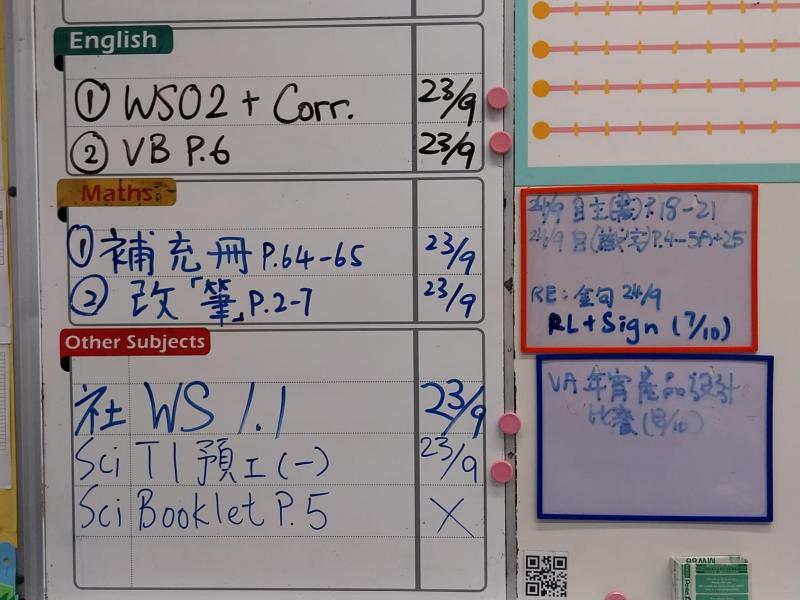 English
① WS02 + Corr. 23/9
② VB P.6 23/9
Maths
① 補充冊 P.64-65 23/9
② 改「筆」P.2-7 23/9
Other Subjects
社 WS 1.1 23/9
Sci T1 預工(一) 23/9
Sci Booklet P.5 X
24/9 自主 P.18-21
24/9 P.4-5
RE: 金句 24/9
RL+Sign (7/10)
VA 年宵產品設計
比賽 (8/10)